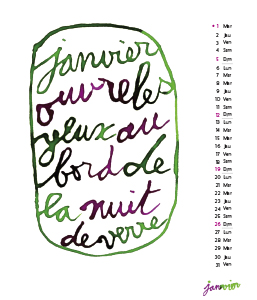 janvier
ouvre les
yeux au
bord de
la nuit
de verre
1 Mer
2 Jeu
3 Ven
4 Sam
5 Dim
6 Lun
7 Mar
8 Mer
9 Jeu
10 Ven
11 Sam
12 Dim
13 Lun
14 Mar
15 Mer
16 Jeu
17 Ven
18 Sam
19 Dim
20 Lun
21 Mar
22 Mer
23 Jeu
24 Ven
25 Sam
26 Dim
27 Lun
28 Mar
29 Mer
30 Jeu
31 Ven
janvier